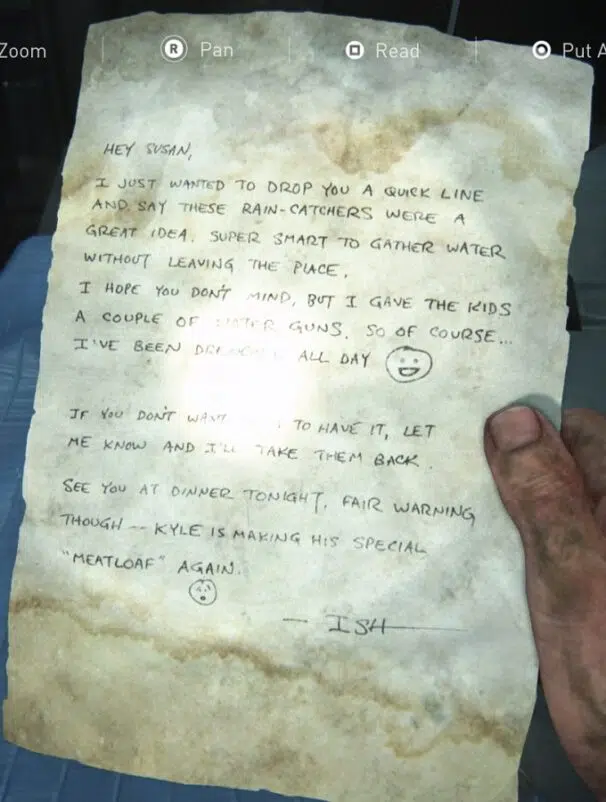 Zoom R Pan Read Put A
HEY SUSAN,
I JUST WANTED TO DROP YOU A QUICK LINE
AND SAY THESE RAIN-CATCHERS WERE A
GREAT IDEA. SUPER SMART TO GATHER WATER
WITHOUT LEAVING THE PLACE.
I HOPE YOU DON'T MIND, BUT I GAVE THE KIDS
A COUPLE OF WATER GUNS. SO OF COURSE...
I'VE BEEN ALL DAY
IF YOU DON'T WANT TO HAVE IT, LET
ME KNOW AND I'LL TAKE THEM BACK.
SEE YOU AT DINNER TONIGHT. FAIR WARNING
THOUGH -- KYLE IS MAKING HIS SPECIAL
"MEATLOAF" AGAIN.
— ISH